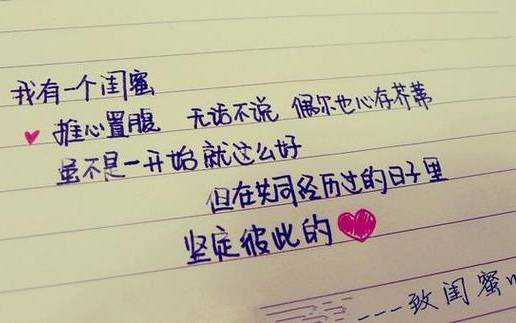 我有一个闺蜜
推心置腹 无话不说 偶尔也心存芥蒂
虽不是一开始就这么好
但在共同经历过的日子里
坚定彼此的
----致闺蜜